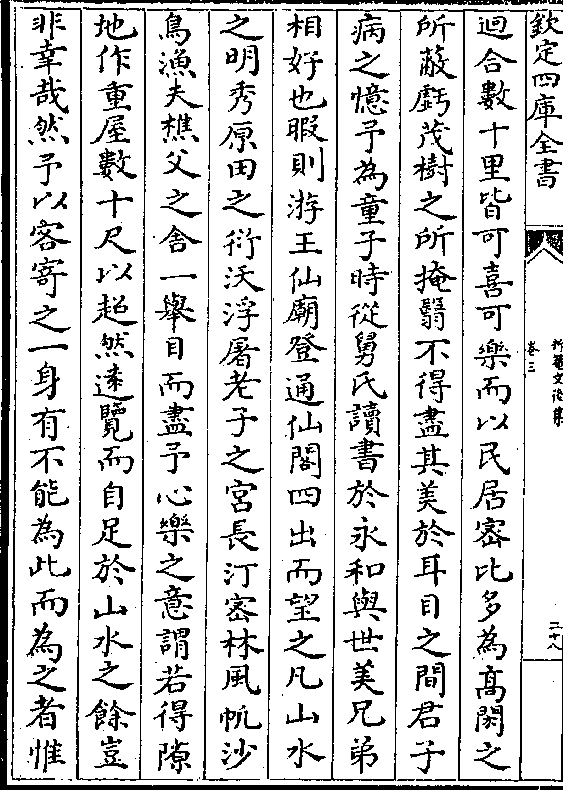 欽定四庫全書
卷三
二十八
迴合數十里皆可喜可樂而以民居密比多為髙閎之
所蔽虧茂樹之所掩翳不得盡其美於耳目之間君子
病之憶予為童子時從舅氏讀書於永和與世美兄弟
相好也暇則游王仙廟登通仙閣四出而望之凡山水
之明秀原田之衍沃浮屠老子之宮長汀密林風帆沙
鳥漁夫樵父之舎一舉目而盡予心樂之意謂若得隙
地作重屋數十尺以超然逺覽而自足於山水之餘豈
非幸哉然予以客寄之一身有不能為此而為之者惟